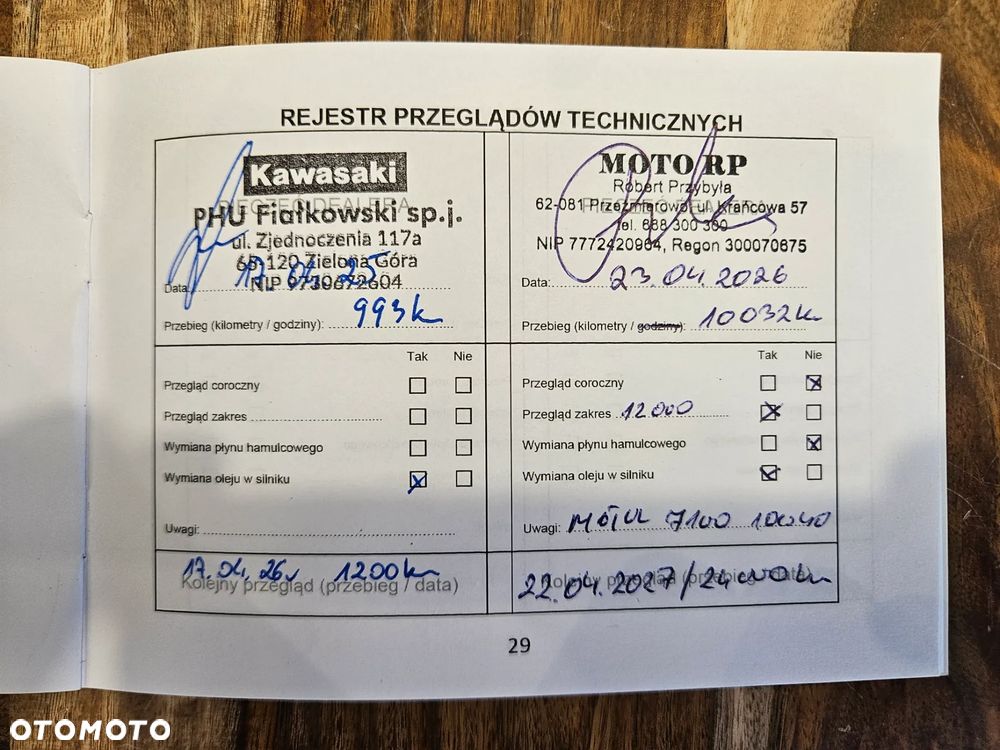 REJESTR PRZEGLĄDÓW TECHNICZNYCH
Kawasaki
PHU Fiałkowski sp.j.
ul. Zjednoczenia 117a
65-120 Zielona Góra
NIP 9730672604
Data: 17.04.25
Przebieg (kilometry / godziny): 993km
Tak Nie
Przegląd coroczny
Przegląd zakres
Wymiana płynu hamulcowego
Wymiana oleju w silniku
Uwagi:
17.04.26r 1200km
Kolejny przegląd (przebieg / data)
MOTO RP
Robert Przybyła
62-081 Przeźmierowo ul. Krańcowa 57
tel. 888 300 300
NIP 7772420964, Regon 300070875
Data: 23.04.2026
Przebieg (kilometry / godziny): 10032km
Tak Nie
Przegląd coroczny
Przegląd zakres 12000
Wymiana płynu hamulcowego
Wymiana oleju w silniku
Uwagi: MOTUL 7100 10W40
22.04.2027/24000km
Kolejny przegląd (przebieg / data)
29
OTOMOTO